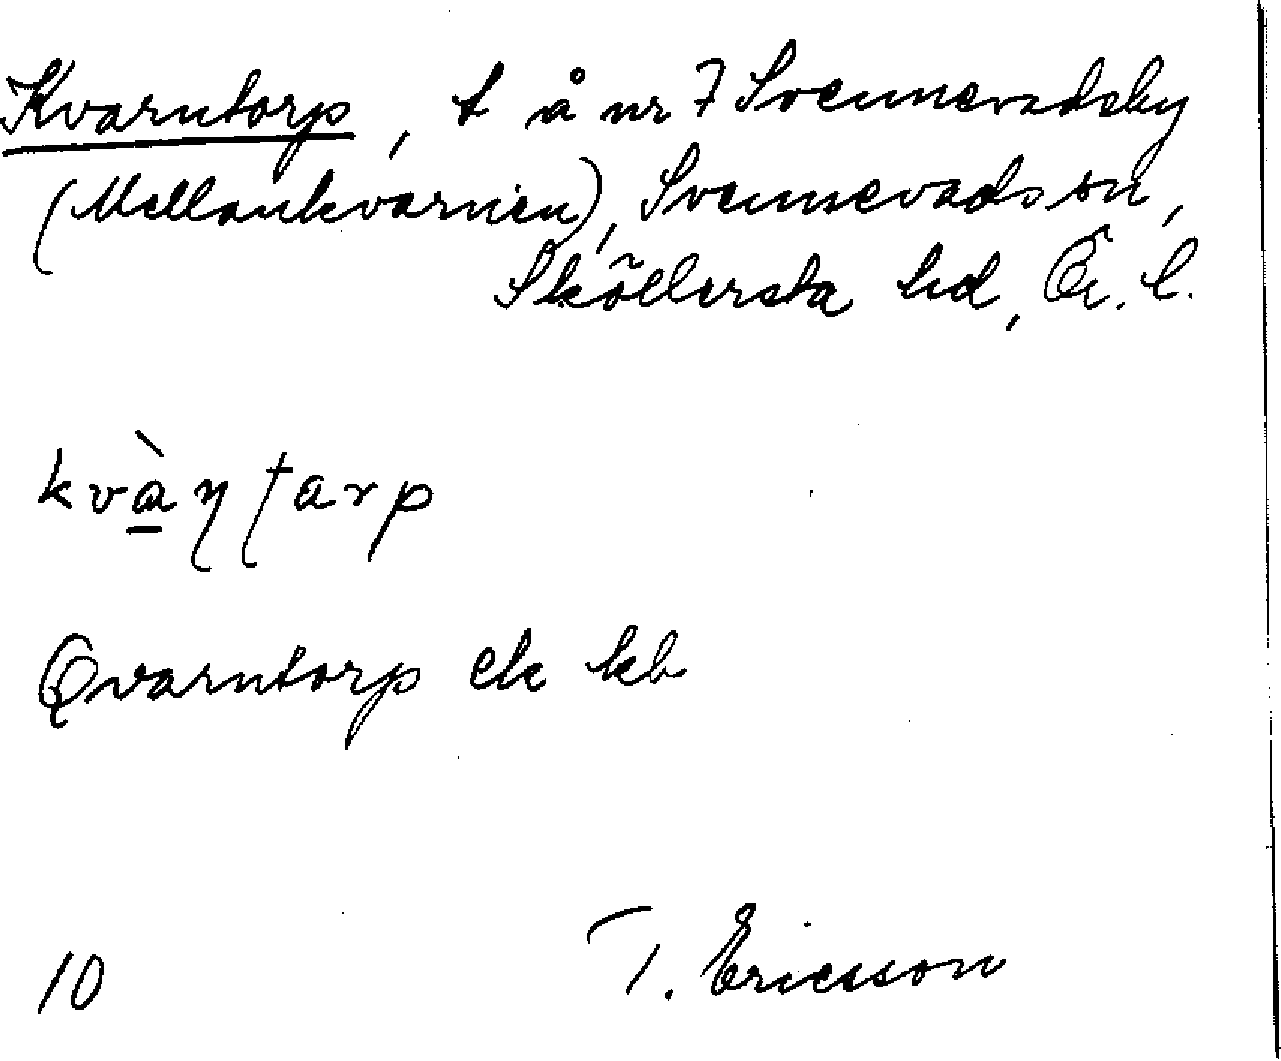 Kvarntorp, t å nr 7 Svennevadsby
(Mellankvarnen), Svennevads sn,
Sköllersta hd, Ör. l.
kvàṇṭarp
Qvarntorp ek kb
10 T. Ericsson